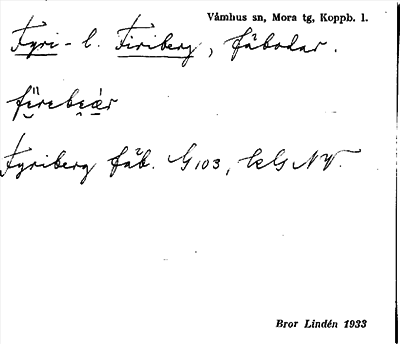 Våmhus sn, Mora tg, Koppb. l.
Fyri- l. Firiberg, fäbodar.
Fyriberg fäb. G 103, kls NV.
Bror Lindén 1933